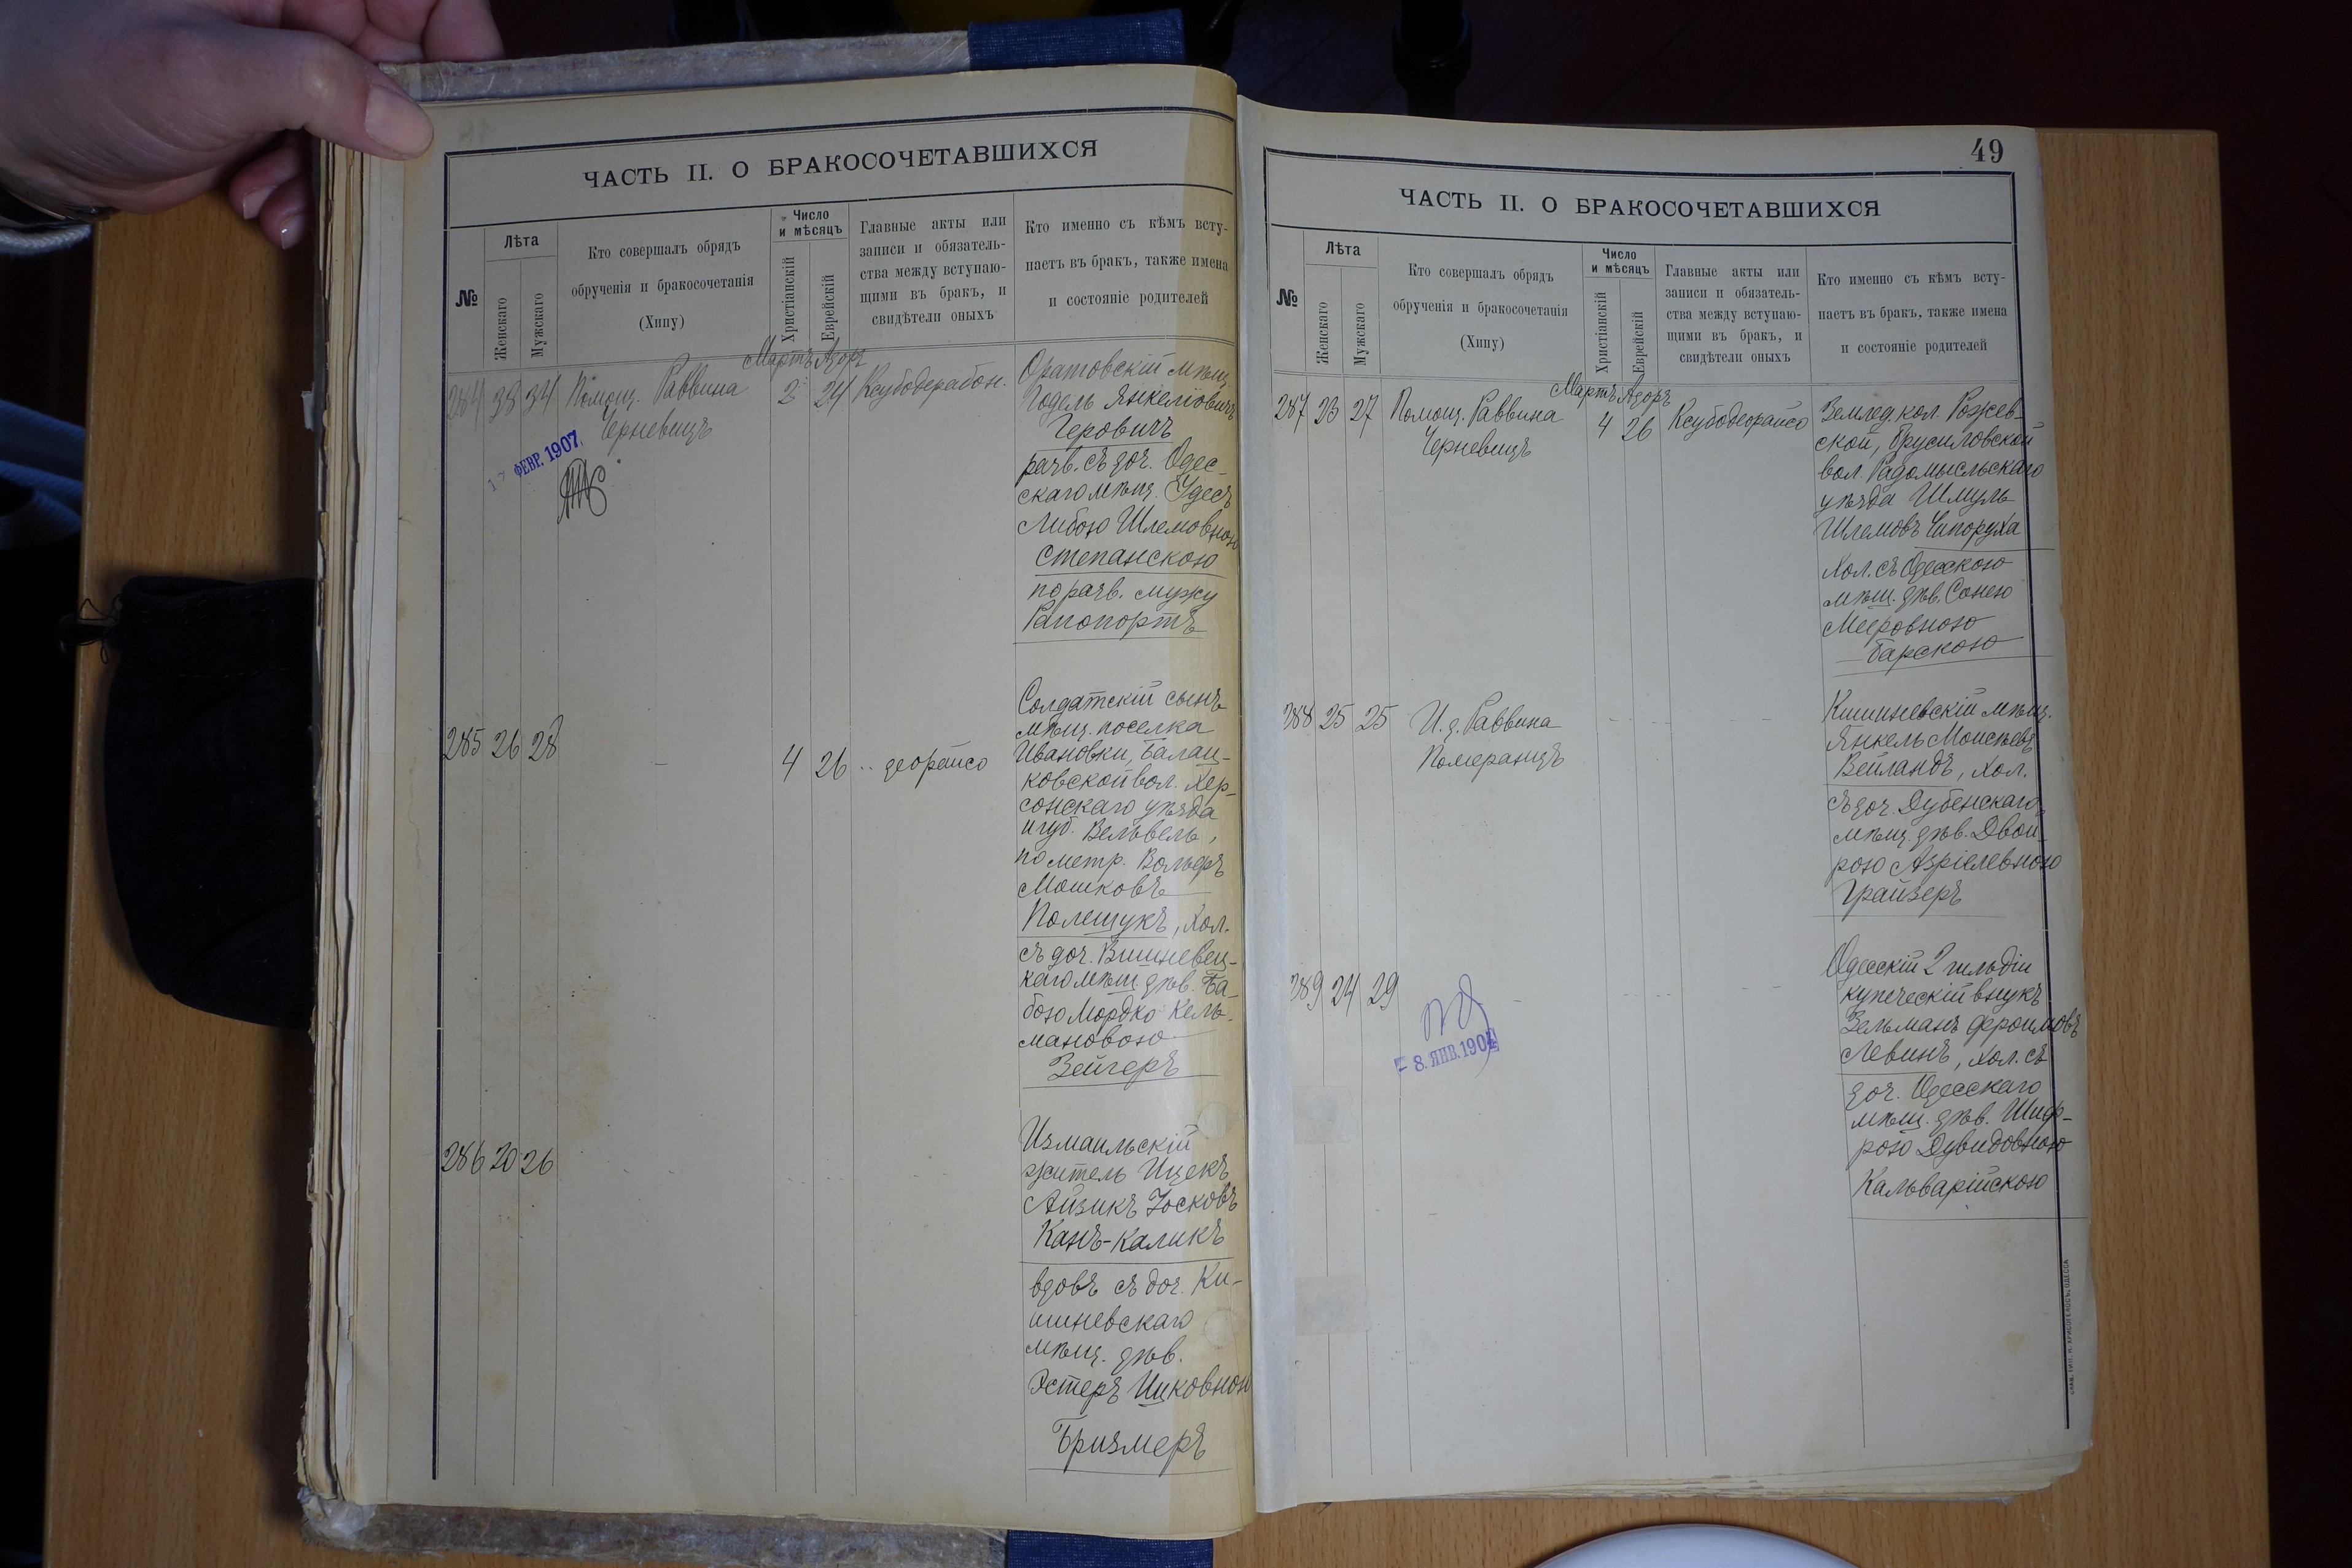 ЧАСТЬ II. О БРАКОСОЧЕТАВШИХСЯ
№
Лѣта
Женскаго
Мужскаго
Кто совершалъ обрядъ
обрученія и бракосочетанія
(Хипу)
Число
и мѣсяцъ
Христіанскій
Еврейскій
Главные акты или
записи и обязатель-
ства между вступаю-
щими въ бракъ, и
свидѣтели оныхъ
Кто именно съ кѣмъ всту-
паетъ въ бракъ, также имена
и состояніе родителей
Мартъ Адоръ
284 38 34 Помощ. Раввина 2 24 Ксубодерабон.
Черневицъ
17 ФЕВР. 1907
Оратовскій мѣщ.
Годель Янкелювичъ
Геровичъ
разв. съ доч. Одес-
скаго мѣщ. Удесъ
Либою Шлемовною
Степанскою
по разв. мужу
Рапопортъ
285 26 28 4 26 деорайсо
Солдатскій сынъ
мѣщ. поселка
Ивановки, Балац-
ковской вол. Хер-
сонскаго уѣзда
и губ. Вельвель,
по метр. Вольфъ
Мошковъ
Полещукъ, хол.
съ доч. Вишневец-
каго мѣщ. дѣв. Ба-
бою Мордко Кель-
мановою
Зейгеръ
286 20 26
Измаильскій
житель Ицекъ
Айзикъ Іосковъ
Канъ-Каликъ
вдовъ съ доч. Ки-
шиневскаго
мѣщ. дѣв.
Эстеръ Ицковною
Бризмеръ
49
ЧАСТЬ II. О БРАКОСОЧЕТАВШИХСЯ
№
Лѣта
Женскаго
Мужскаго
Кто совершалъ обрядъ
обрученія и бракосочетанія
(Хипу)
Число
и мѣсяцъ
Христіанскій
Еврейскій
Главные акты или
записи и обязатель-
ства между вступаю-
щими въ бракъ, и
свидѣтели оныхъ
Кто именно съ кѣмъ всту-
паетъ въ бракъ, также имена
и состояніе родителей
Мартъ Адоръ
287 23 27 Помощ. Раввина 4 26 Ксубодеорайсо
Черневицъ
Землед. кол. Рожев-
ской, Брусиловской
вол. Радомысльскаго
уѣзда Шмуль
Шлемовъ Чапоруха
Хол. съ Одесскою
мѣщ. дѣв. Сонею
Мееровною
Барскою
288 25 25 И. д. Раввина
Померанцъ
Кишиневскій мѣщ.
Янкель Моисеевъ
Вейландъ, хол.
съ доч. Дубенскаго
мѣщ. дѣв. Двой-
рою Азріелевною
Грайзеръ
289 24 29
8. ЯНВ. 1904
Одесскій 2 гильдіи
купеческій внукъ
Зельманъ Фроимовъ
Левинъ, хол. съ
доч. Одесскаго
мѣщ. дѣв. Шиф-
рою Дувидовною
Кальварійскою